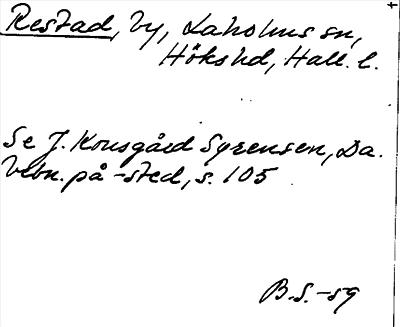 Restad, by, Laholms sn,
Höks hd, Hall. l.
Se J. Kousgård Sørensen, Da.
bebn. på -sted, s. 105
B.S. -59